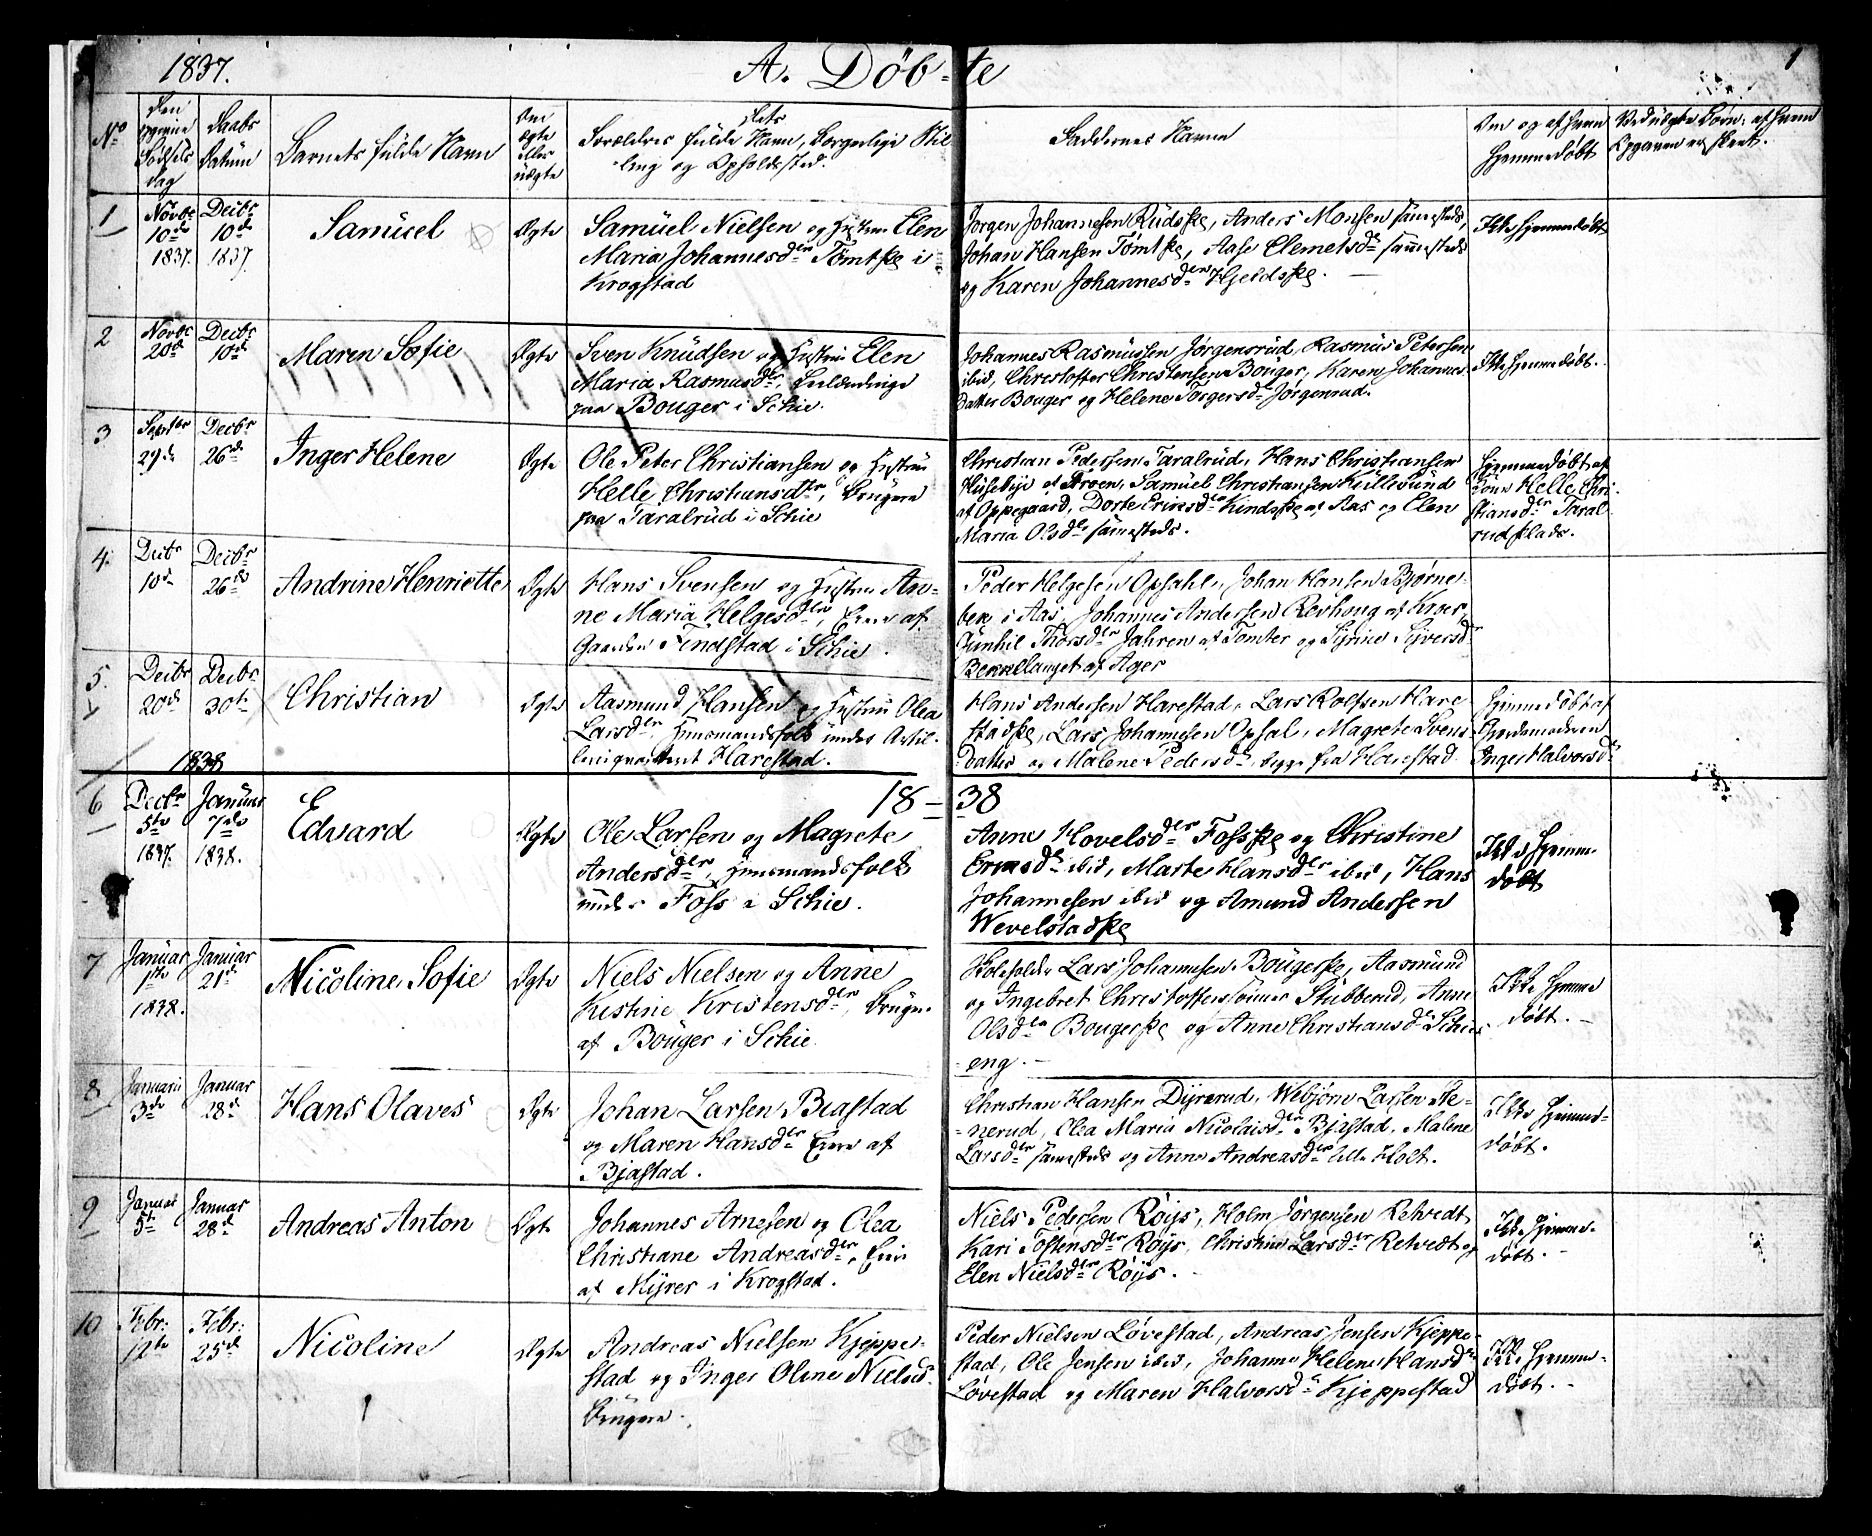 1837.
A. Døb-te
1
No
Den
opgivne
Fødsels
dag
Daabs
Datum
Barnets fulde Navn
Om
ægte
eller
uægte
Forældres fulde Navn, dets borgerlige Stil-
ling og Opholdssted.
Faddernes Navne
Om og af hvem
hjemmedøbt
Ved uægte Børn, af hvem
Opgaven er skeet.
1
Novbr
10de
1837.
Decbr
10de
1837.
Samüel
Ægte
Samüel Nielsen og Hustru Elen
Maria Johannesdter Tømtske i
Krogstad
Jørgen Johannesen Rüdske, Anders Monsen sammesteds,
Johan Hansen Tømtske, Aase Clemetsdr sammesteds
og Karen Johannesdter Hjeldske.
Ikke hjemmedøbt
2
Novbr
20de
Decbr
10de
Maren Sofie
Ægte
Sven Knüdsen og Hustru Elen
Maria Rasmusdter,
paa Bouger i Schie.
Johannes Rasmüssen Jørgensrüd, Rasmüs Petersen
ibid, Christoffer Christensen Boüger, Karen Johannes-
datter Bouger og Helene Torgersdr Jørgensrud.
Ikke hjemmedøbt.
3
Septbr
29de
Decbr
26de
Inger Helene
Ægte
Ole Peter Christiansen og Hustru
Helle Christiansdter, Brügere
paa Taralrüd i Schie
Christian Pedersen Taralrüd, Hans Christiansen
Husebye af Froen, Samüel Christiansen Küllesünd
af Oppegaard, Dorte Ericsdter Kindske af Aas og Elen
Maria Olsdter sammesteds.
Hjemmedøbt af
Helle Chri-
stiansdter Taral-
rud
4.
Decbr
10de
Decbr
26de
Andrine Henriette
Ægte
Hans Svensen og Hustru An-
ne Maria Helgesdter, Eiere af
Gaarden Findstad i Schie.
Peder Helgesen Opsahl, Johan Hansen Bjørne-
bek i Aas, Johannes Andersen Revhoug af Kroer,
Günhil Thorsdter Jahren af Tomter og Signe Siversdr
Bekkelanget af Ager
5.
Decbr
20de
Decbr
30te
Christian
Ægte
Aasmund Hansen og Hustru Olea
Larsdter, Huusmandsfolk ünder Artil-
Harestad.
Hans Andersen Harestad, Lars Rolfsen Hare-
stadske, Lars Johannesen Opsal, Magrete Svens-
datter og Malene Pedersdr, begge fra Harestad.
Hjemmedøbt af
Gjordemoderen
Inger Halvorsdr
1838
18-38
6
Decbr
5te
1837.
Januar
7de
1838.
Edvard
Ægte
Ole Larsen og Magrete
Andersdter, Huusmandsfolk
ünder Foss i Schie.
Anne Hovelsdter Fossske og Christine
ibid, Marte Hansdter ibid, Hans
Johannesen ibid og Amund Andersen
Wevelstadske
Ikke hjemme-
døbt
7
Januar
1ste
1838.
Januar
21de
Nicoline Sofie
Ægte
Niels Nielsen og Anne
Kistine Kristensdter, Brüger
af Boüger i Schie
Skoleholder Lars Johannesen Boügerske, Aasmünd
og Ingebret Christoffersønner Stübberud, Anne
Olsdter Bougerske og Anne Christiansdr Schie-
eng.
Ikke hjemme
døbt.
8
Januar
3de
Januar
28de
Hans Olaves
Ægte
Johan Larsen Bjastad
og Maren Hansdter Eiere af
Bjastad.
Christian Hansen Dyrerud, Webjørn Larsen Ste-
nerud, Olea Maria Nicolaisdter Bjastad, Malene
Larsdter sammesteds og Anne Andreasdter lille Holt.
Ikke hjemme-
døbt.
9
Januar
5te
Januar
28de
Andreas Anton
Ægte
Johannes Arnesen og Olea
Christiane Andreasdter, Eier
af Myrer i Krogstad.
Niels Pedersen Røys, Holm Jørgensen Retvedt,
Kari Tostensdter Røys, Christine Larsdter Retvedt og
Elen Nielsdter Røys.
Ikke hjemme-
døbt.
10
Febr:
12te
Febr:
25de
Nicoline
Ægte
Andreas Nielsen Kjeppe-
stad og Inger Oline Nielsd.
Brügere.
Peder Nielsen Løvestad, Andreas Jensen Kjeppe-
stad, Ole Jensen ibid, Johanne Helene Hansdr
Løvestad og Maren Halvorsdr Kjeppestad
Ikke hjemme-
døbt.